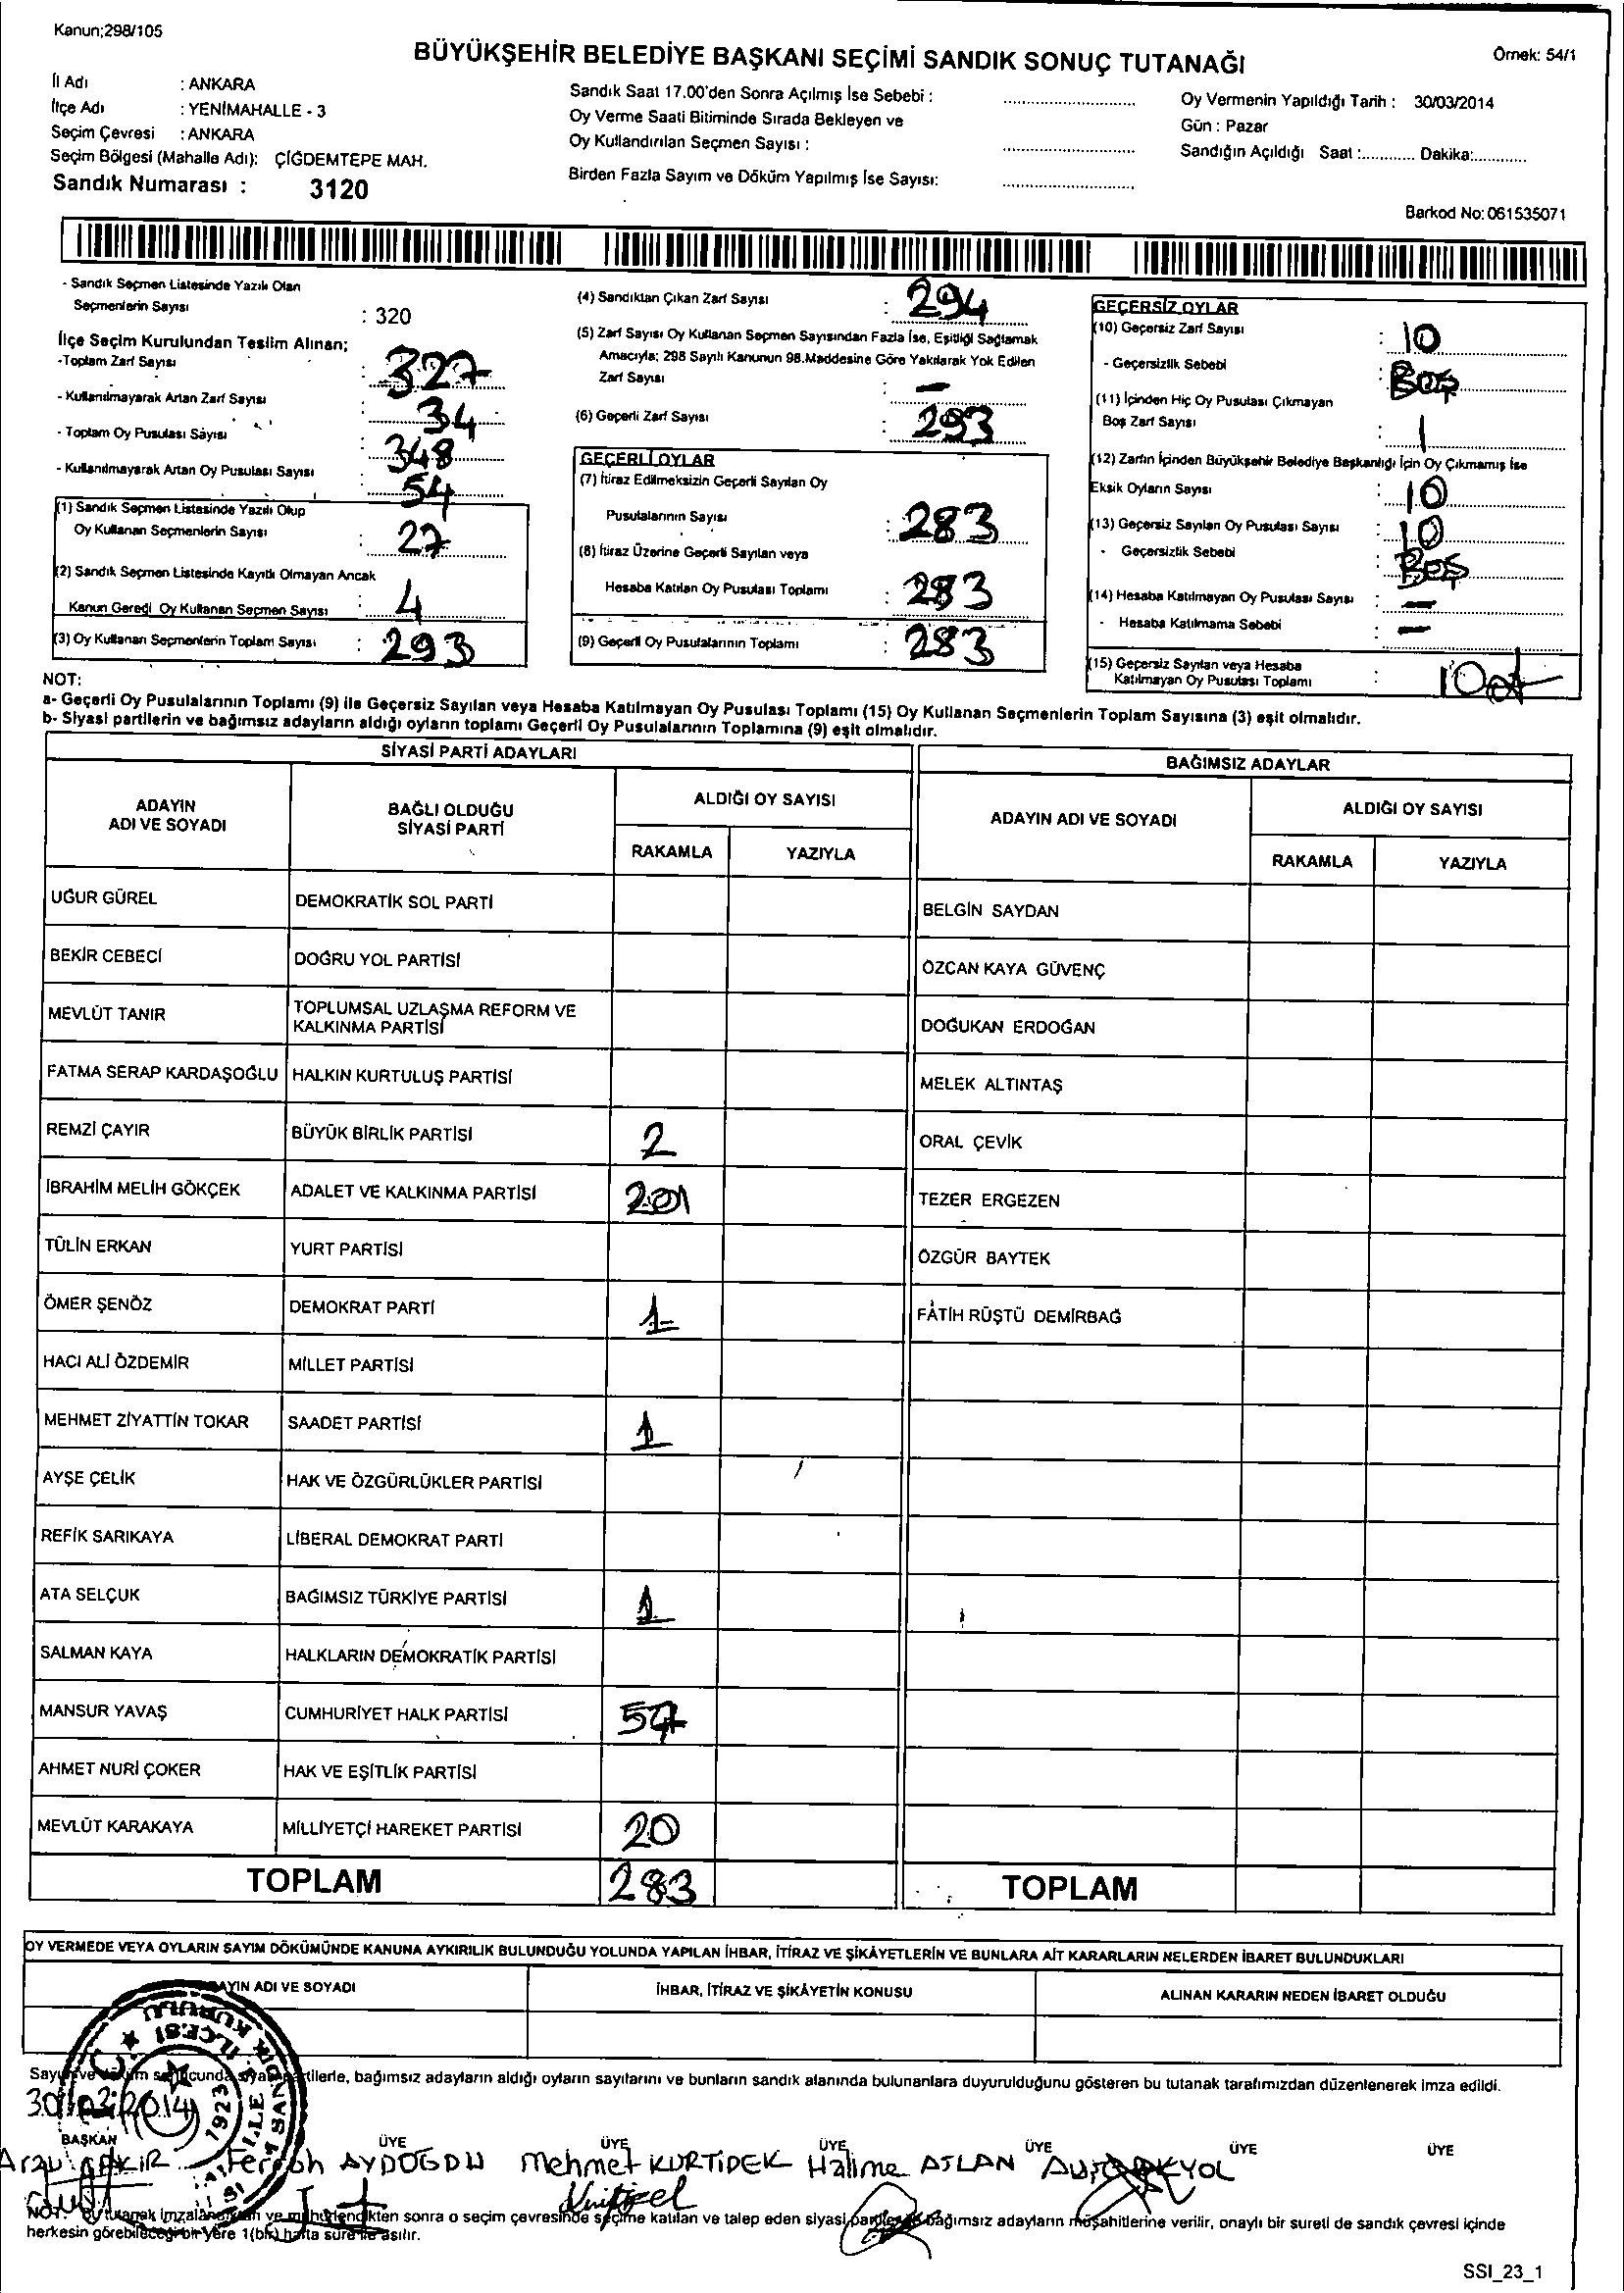 Kanun;298/105
BÜYÜKŞEHİR BELEDİYE BAŞKANI SEÇİMİ SANDIK SONUÇ TUTANAĞI
Örnek: 54/1
İl Adı : ANKARA
İlçe Adı : YENİMAHALLE - 3
Seçim Çevresi : ANKARA
Seçim Bölgesi (Mahalle Adı): ÇİĞDEMTEPE MAH.
Sandık Numarası : 3120
Sandık Saat 17.00'den Sonra Açılmış İse Sebebi :
Oy Verme Saati Bitiminde Sırada Bekleyen ve
Oy Kullandırılan Seçmen Sayısı :
Birden Fazla Sayım ve Döküm Yapılmış İse Sayısı:
Oy Vermenin Yapıldığı Tarih : 30/03/2014
Gün : Pazar
Sandığın Açıldığı Saat :............ Dakika:............
Barkod No: 061535071
- Sandık Seçmen Listesinde Yazılı Olan
Seçmenlerin Sayısı : 320
İlçe Seçim Kurulundan Teslim Alınan;
-Toplam Zarf Sayısı : 327
- Kullanılmayarak Artan Zarf Sayısı : 34
- Toplam Oy Pusulası Sayısı : 348
- Kullanılmayarak Artan Oy Pusulası Sayısı : 54
(1) Sandık Seçmen Listesinde Yazılı Olup
Oy Kullanan Seçmenlerin Sayısı : 27
(2) Sandık Seçmen Listesinde Kayıtlı Olmayan Ancak
Kanun Gereği Oy Kullanan Seçmen Sayısı : 4
(3) Oy Kullanan Seçmenlerin Toplam Sayısı : 293
(4) Sandıktan Çıkan Zarf Sayısı : 294
(5) Zarf Sayısı Oy Kullanan Seçmen Sayısından Fazla İse, Eşitliği Sağlamak
Amacıyla; 298 Sayılı Kanunun 98.Maddesine Göre Yakılarak Yok Edilen
Zarf Sayısı : -
(6) Geçerli Zarf Sayısı : 293
GEÇERLİ OYLAR
(7) İtiraz Edilmeksizin Geçerli Sayılan Oy
Pusulalarının Sayısı : 283
(8) İtiraz Üzerine Geçerli Sayılan veya
Hesaba Katılan Oy Pusulası Toplamı : 283
(9) Geçerli Oy Pusulalarının Toplamı : 283
GEÇERSİZ OYLAR
(10) Geçersiz Zarf Sayısı : 10
- Geçersizlik Sebebi : Boş
(11) İçinden Hiç Oy Pusulası Çıkmayan
Boş Zarf Sayısı : 1
(12) Zarfın İçinden Büyükşehir Belediye Başkanlığı İçin Oy Çıkmamış İse
Eksik Oyların Sayısı : 10
(13) Geçersiz Sayılan Oy Pusulası Sayısı : 10
- Geçersizlik Sebebi : Boş
(14) Hesaba Katılmayan Oy Pusulası Sayısı : -
- Hesaba Katılmama Sebebi : -
(15) Geçersiz Sayılan veya Hesaba
Katılmayan Oy Pusulası Toplamı : 10
NOT:
a- Geçerli Oy Pusulalarının Toplamı (9) ile Geçersiz Sayılan veya Hesaba Katılmayan Oy Pusulası Toplamı (15) Oy Kullanan Seçmenlerin Toplam Sayısına (3) eşit olmalıdır.
b- Siyasi partilerin ve bağımsız adayların aldığı oyların toplamı Geçerli Oy Pusulalarının Toplamına (9) eşit olmalıdır.
SİYASİ PARTİ ADAYLARI
ADAYIN ADI VE SOYADI
BAĞLI OLDUĞU SİYASİ PARTİ
ALDIĞI OY SAYISI
RAKAMLA YAZIYLA
UĞUR GÜREL DEMOKRATİK SOL PARTİ
BEKİR CEBECİ DOĞRU YOL PARTİSİ
MEVLÜT TANIR TOPLUMSAL UZLAŞMA REFORM VE
KALKINMA PARTİSİ
FATMA SERAP KARDAŞOĞLU HALKIN KURTULUŞ PARTİSİ
REMZİ ÇAYIR BÜYÜK BİRLİK PARTİSİ 2
İBRAHİM MELİH GÖKÇEK ADALET VE KALKINMA PARTİSİ 201
TÜLİN ERKAN YURT PARTİSİ
ÖMER ŞENÖZ DEMOKRAT PARTİ 1
HACI ALİ ÖZDEMİR MİLLET PARTİSİ
MEHMET ZİYATTİN TOKAR SAADET PARTİSİ 1
AYŞE ÇELİK HAK VE ÖZGÜRLÜKLER PARTİSİ
REFİK SARIKAYA LİBERAL DEMOKRAT PARTİ
ATA SELÇUK BAĞIMSIZ TÜRKİYE PARTİSİ 1
SALMAN KAYA HALKLARIN DEMOKRATİK PARTİSİ
MANSUR YAVAŞ CUMHURİYET HALK PARTİSİ 57
AHMET NURİ ÇOKER HAK VE EŞİTLİK PARTİSİ
MEVLÜT KARAKAYA MİLLİYETÇİ HAREKET PARTİSİ 20
TOPLAM 283
BAĞIMSIZ ADAYLAR
ADAYIN ADI VE SOYADI
ALDIĞI OY SAYISI
RAKAMLA YAZIYLA
BELGİN SAYDAN
ÖZCAN KAYA GÜVENÇ
DOĞUKAN ERDOĞAN
MELEK ALTINTAŞ
ORAL ÇEVİK
TEZER ERGEZEN
ÖZGÜR BAYTEK
FATİH RÜŞTÜ DEMİRBAĞ
TOPLAM
OY VERMEDE VEYA OYLARIN SAYIM DÖKÜMÜNDE KANUNA AYKIRILIK BULUNDUĞU YOLUNDA YAPILAN İHBAR, İTİRAZ VE ŞİKÂYETLERİN VE BUNLARA AİT KARARLARIN NELERDEN İBARET BULUNDUKLARI
ADI VE SOYADI
İHBAR, İTİRAZ VE ŞİKÂYETİN KONUSU
ALINAN KARARIN NEDEN İBARET OLDUĞU
bağımsız adayların aldığı oyların sayılarını ve bunların sandık alanında bulunanlara duyurulduğunu gösteren bu tutanak tarafımızdan düzenlenerek imza edildi.
30/03/2014
BAŞKAN ÜYE ÜYE ÜYE ÜYE ÜYE ÜYE
Arzu AYDOĞDU Mehmet KURTİPEK Halime ASLAN
sonra o seçim çevresinde seçime katılan ve talep eden siyasi bağımsız adayların müşahitlerine verilir, onaylı bir sureti de sandık çevresi içinde
herkesin görebileceği bir yere 1(bir) hafta süre ile asılır.
SSI_23_1